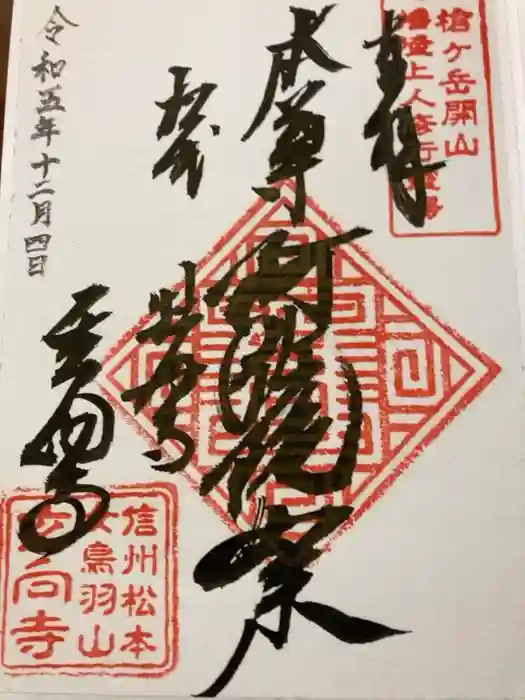 槍ヶ岳開山
播隆上人修行霊場
奉拝
本尊
阿弥陀如来
玄向寺
令和五年十二月四日
信州松本
女鳥羽山
玄向寺